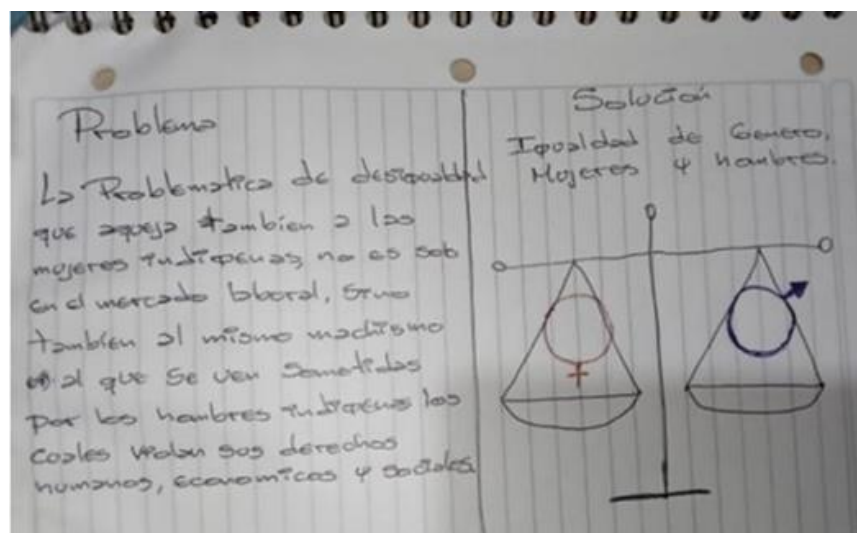 Problema
La Problematica de desigualdad
que aqueja tambien a las
mujeres indigenas, no es solo
en el mercado laboral, sino
también al mismo machismo
al que se ven sometidas
por los hombres indigenas los
cuales violan sus derechos
humanos, economicos y sociales.
Solución
Igualdad de Genero,
Mujeres y hombres.